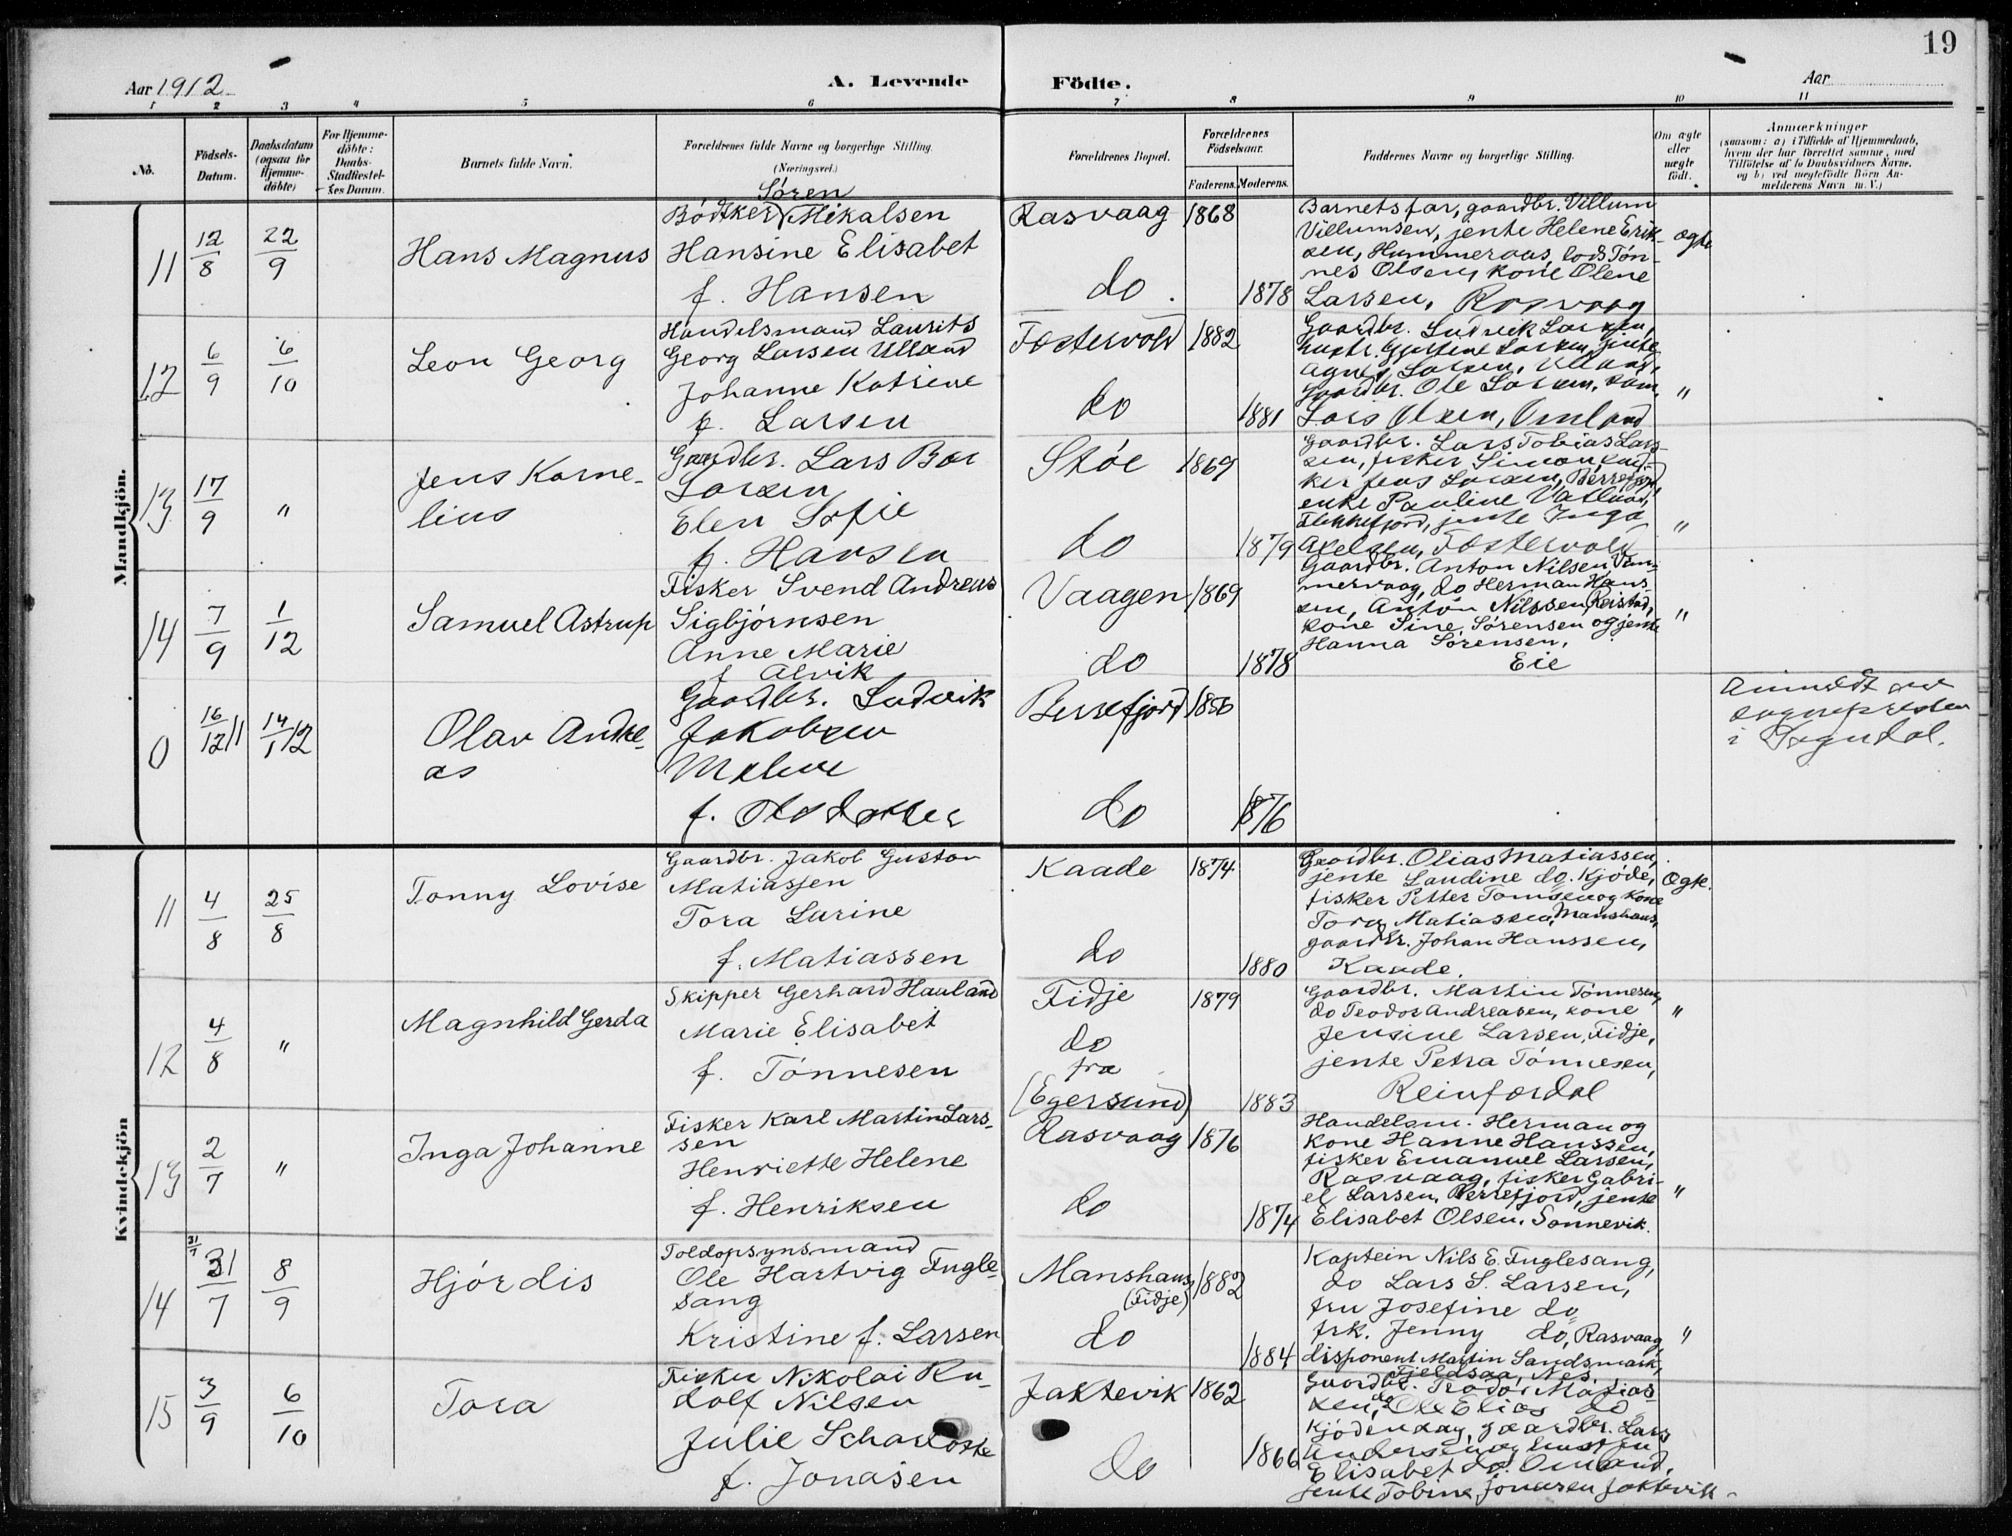 19
Aar 1912.
A. Levende Födte.
Aar
1 2 3 4 5 6 7 8 9 10 11
No.
Födsels-Datum.
Daabsdatum (ogsaa for Hjemme-döbte)
For Hjemme-döbte: Daabs-Stadfæstel-ses Datum.
Barnets fulde Navn.
Forældrenes fulde Navne og borgerlige Stilling. (Næringsvei.)
Forældrenes Bopæl.
Forældrenes Födselsaar.
Faderens. Moderens.
Faddernes Navne og borgerlige Stilling.
Om ægte eller uægte födt.
Anmærkninger
(saasom: a) i Tilfælde af Hjemmedaab, hvem der har forrettet samme, med Tilföielse af to Daabsvidners Navne, og b) ved uægtefödte Börn An-melderens Navn m. V.)
Mandkjön.
11
12/8
22/9
Hans Magnus
Søren
Bødtker Mikalsen
Hansine Elisabet
f. Hansen
Rasvaag
do.
1868
1878
Barnets far, gaardbr. Villum
Villumsen, jente Helene Erik-
sen, Hummeraas, lods Tøn-
nes Olsen, kone Olene
Larsen, Rasvaag
ægte
12
6/9
6/10
Leon Georg
Handelsmand Laurits
Georg Larsen Ulland
Johanne Katrine
f. Larsen
Fostervold
do
1882
1881
Gaardbr. Ludvik Larsen,
hustr. Gjertine Larsen, jente
Agnes Larsen, Ulland,
Gaardbr. Ole Larsen,
Lars Olsen, Omland
"
13
17/9
"
Jens Korne-
lius
Gaardbr. Lars Bor
Larsen
Elen Sofie
f. Hansen
Støe
do
1869
1879
Gaardbr. Lars Tobias Lars-
sen, fisker Simon,
Jens Larsen, Berrefjord,
enke Pauline Vatland,
Flekkefjord, jente Inga
Axelsen, Fostervold
"
14
7/9
1/12
Samuel Astrup
Fisker Svend Andreas
Sigbjørnsen
Anne Marie
f Alvik
Vaagen
do
1869
1878
Gaardbr. Anton Nilsen Vam-
mervaag, do Herman Hans-
sen, Anton Nilssen, Reistad,
kone Sine Sørensen og jente
Hanna Sørensen,
Eie
"
0
16/12 11
14/1 12
Olav Andre-
as
Gaardbr. Ludvik
Jakobsen
Malene
f. Olsdatter
Berrefjord
do
1856
1876
Anmeldt av
sognepresten
i Sogndal.
Kvindekjön
11
4/8
25/8
Tonny Lovise
Gaardbr. Jakob Gustav
Matiassen
Tora Lurine
f. Matiassen
Kaade
do
1874
1880
Gaardbr. Olias Matiassen,
jente Laudine do. Kjøde,
fisker Petter Tomsen og kone
Tora Matiassen, Manshaus,
gaardbr. Johan Hanssen,
Kaade.
Ægte.
12
4/8
"
Magnhild Gerda
Skipper Gerhard Hauland
Marie Elisabet
f. Tønnesen
Fidje
do
fra
(Egersund)
1879
1883
Gaardbr. Martin Tønnesen,
do Teodor Andreasen, kone
Jensine Larsen, Fidje,
jente Petra Tønnesen,
Reinfordal
"
13
2/7
"
Inga Johanne
Fisker Karl Martin Lars-
sen
Henriette Helene
f. Henriksen
Rasvaag
do
1876
1874
Handelsm. Herman og
kone Hanne Hanssen,
fisker Emanuel Larsen,
Rasvaag, fisker Gabri-
el Larsen, Berrefjord, jente
Elisabet Olsen, Sonnevik.
"
14
31/7
31/7
8/9
Hjørdis
Toldopsynsmand
Ole Hartvig Fugle-
sang
Kristine f. Larsen
Manshaus,
(Fidje)
do
1882
1884
Kaptein Nils E. Fuglesang,
do Lars S. Larsen,
fru Josefine do
frk. Jenny do, Rasvaag,
disponent Martin Sandsmark,
Fjeldsaa, Nes.
"
15
3/9
6/10
Tora
Fisker Nikolai Ru-
dolf Nilsen
Julie Scharlotte
f. Jonasen
Jaktevik
do
1862
1866
Gaardbr. Teodor Matias-
sen, do Ole Elias do
gaardbr. Lars
Andersen og
Elisabet do. Omland,
jente Tobine Jonasen Jaktevik